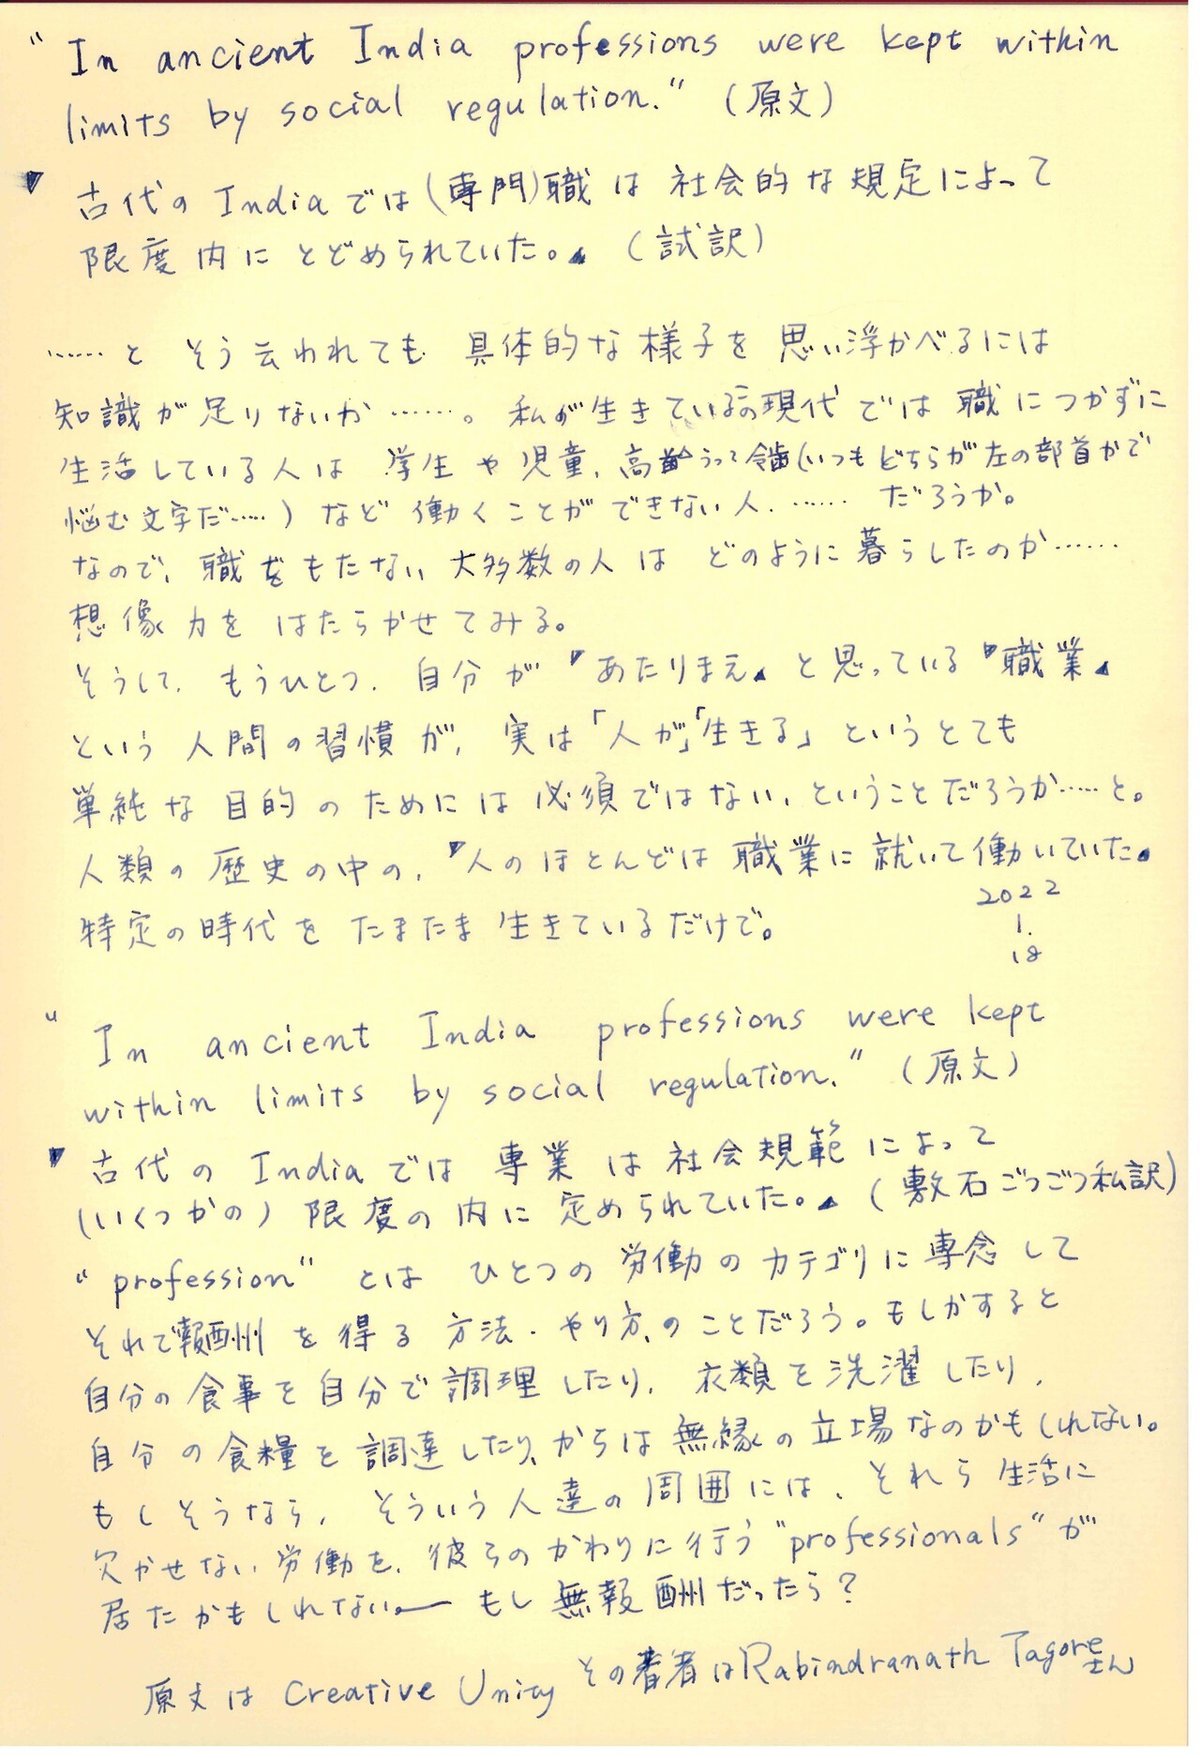 "In ancient India professions were kept within
limits by social regulation." (原文)
『古代の Indiaでは(専門)職は社会的な規定によって
限度内にとどめられていた。』(試訳)
……と そう云われても 具体的な様子を 思い浮かべるには
知識が足りないか……。私が生きているこの現代では職につかずに
生活している人は 学生や児童、高齢って齢(いつもどちらが左の部首かで
悩む文字だ……)など働くことができない人、……だろうか。
なので、職をもたない大多数の人は どのように暮らしたのか……
想像力を はたらかせてみる。
そうして、もうひとつ、自分が『あたりまえ』と思っている『職業』
という人間の習慣が、実は「人が」「生きる」というとても
単純な目的のためには必須ではない、ということだろうか……と。
人類の歴史の中の、『人のほとんどは職業に就いて働いていた』
特定の時代を たまたま生きているだけで。
2022
1.
18
"In ancient India professions were kept
within limits by social regulation." (原文)
『古代の Indiaでは 専業は社会規範によって
(いくつかの)限度の内に定められていた。』(敷石ごつごつ私訳)
"profession" とは ひとつの労働のカテゴリに専念して
それで報酬を得る方法・やり方、のことだろう。もしかすると
自分の食事を自分で調理したり、衣類を洗濯したり、
自分の食糧を調達したり、からは無縁の立場なのかもしれない。
もしそうなら、そういう人達の周囲には、それら生活に
欠かせない労働を、彼らのかわりに行う "professionals" が
居たかもしれない。― もし無報酬だったら?
原文は Creative Unity その著者はRabindranath Tagoreさん